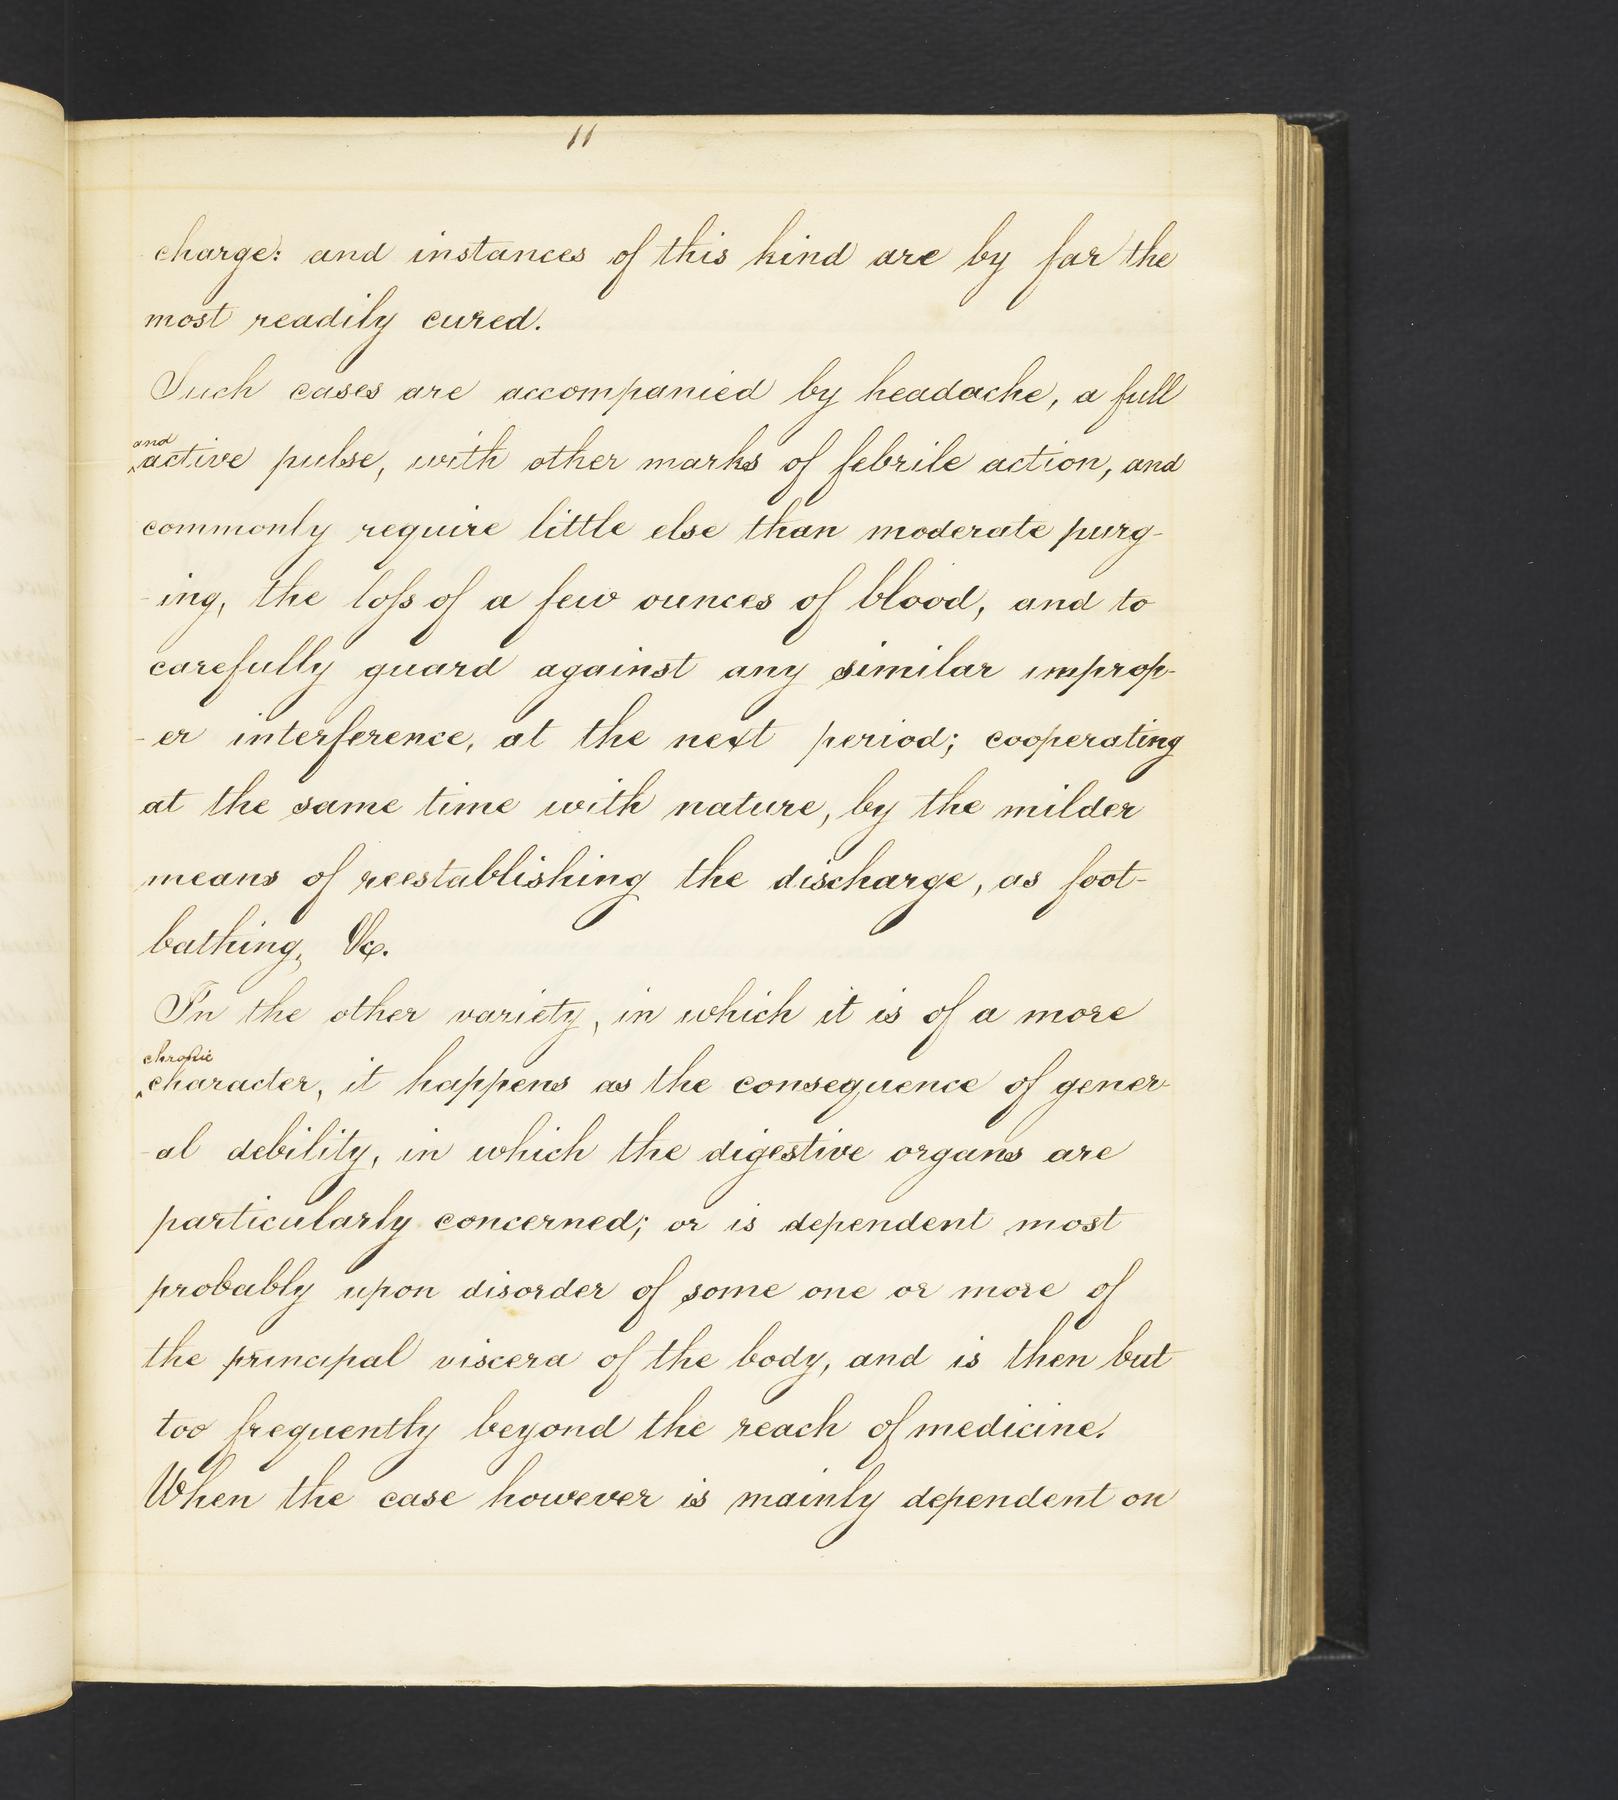 11
charge: and instances of this kind are by far the
most readily cured.
Such cases are accompanied by headache, a full
and
‸active pulse, with other marks of febrile action, and
commonly require little else than moderate purg-
-ing, the loſs of a few ounces of blood, and to
carefully guard against any similar improp-
-er interference, at the next period; cooperating
at the same time with nature, by the milder
means of reestablishing the discharge, as foot-
bathing, &c.
In the other variety, in which it is of a more
chronic
‸character, it happens as the consequence of gener-
-al debility, in which the digestive organs are
particularly concerned; or is dependent most
probably upon disorder of some one or more of
the principal viscera of the body, and is then but
too frequently beyond the reach of medicine.
When the case however is mainly dependent on